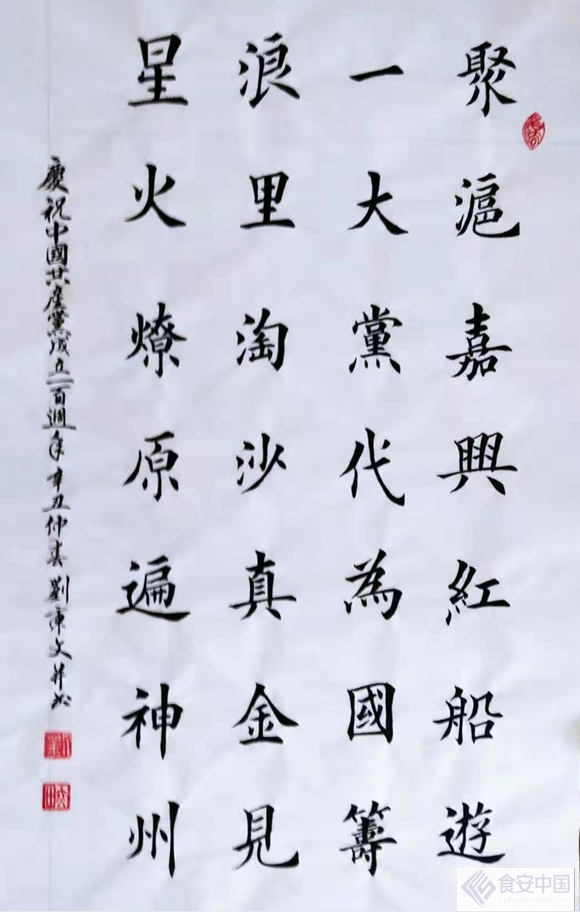 聚滬嘉興紅船遊
一大黨代為國籌
浪里淘沙真金見
星火燎原遍神州
慶祝中國共産黨成立一百週年辛丑仲春劉東文并书
食安中国